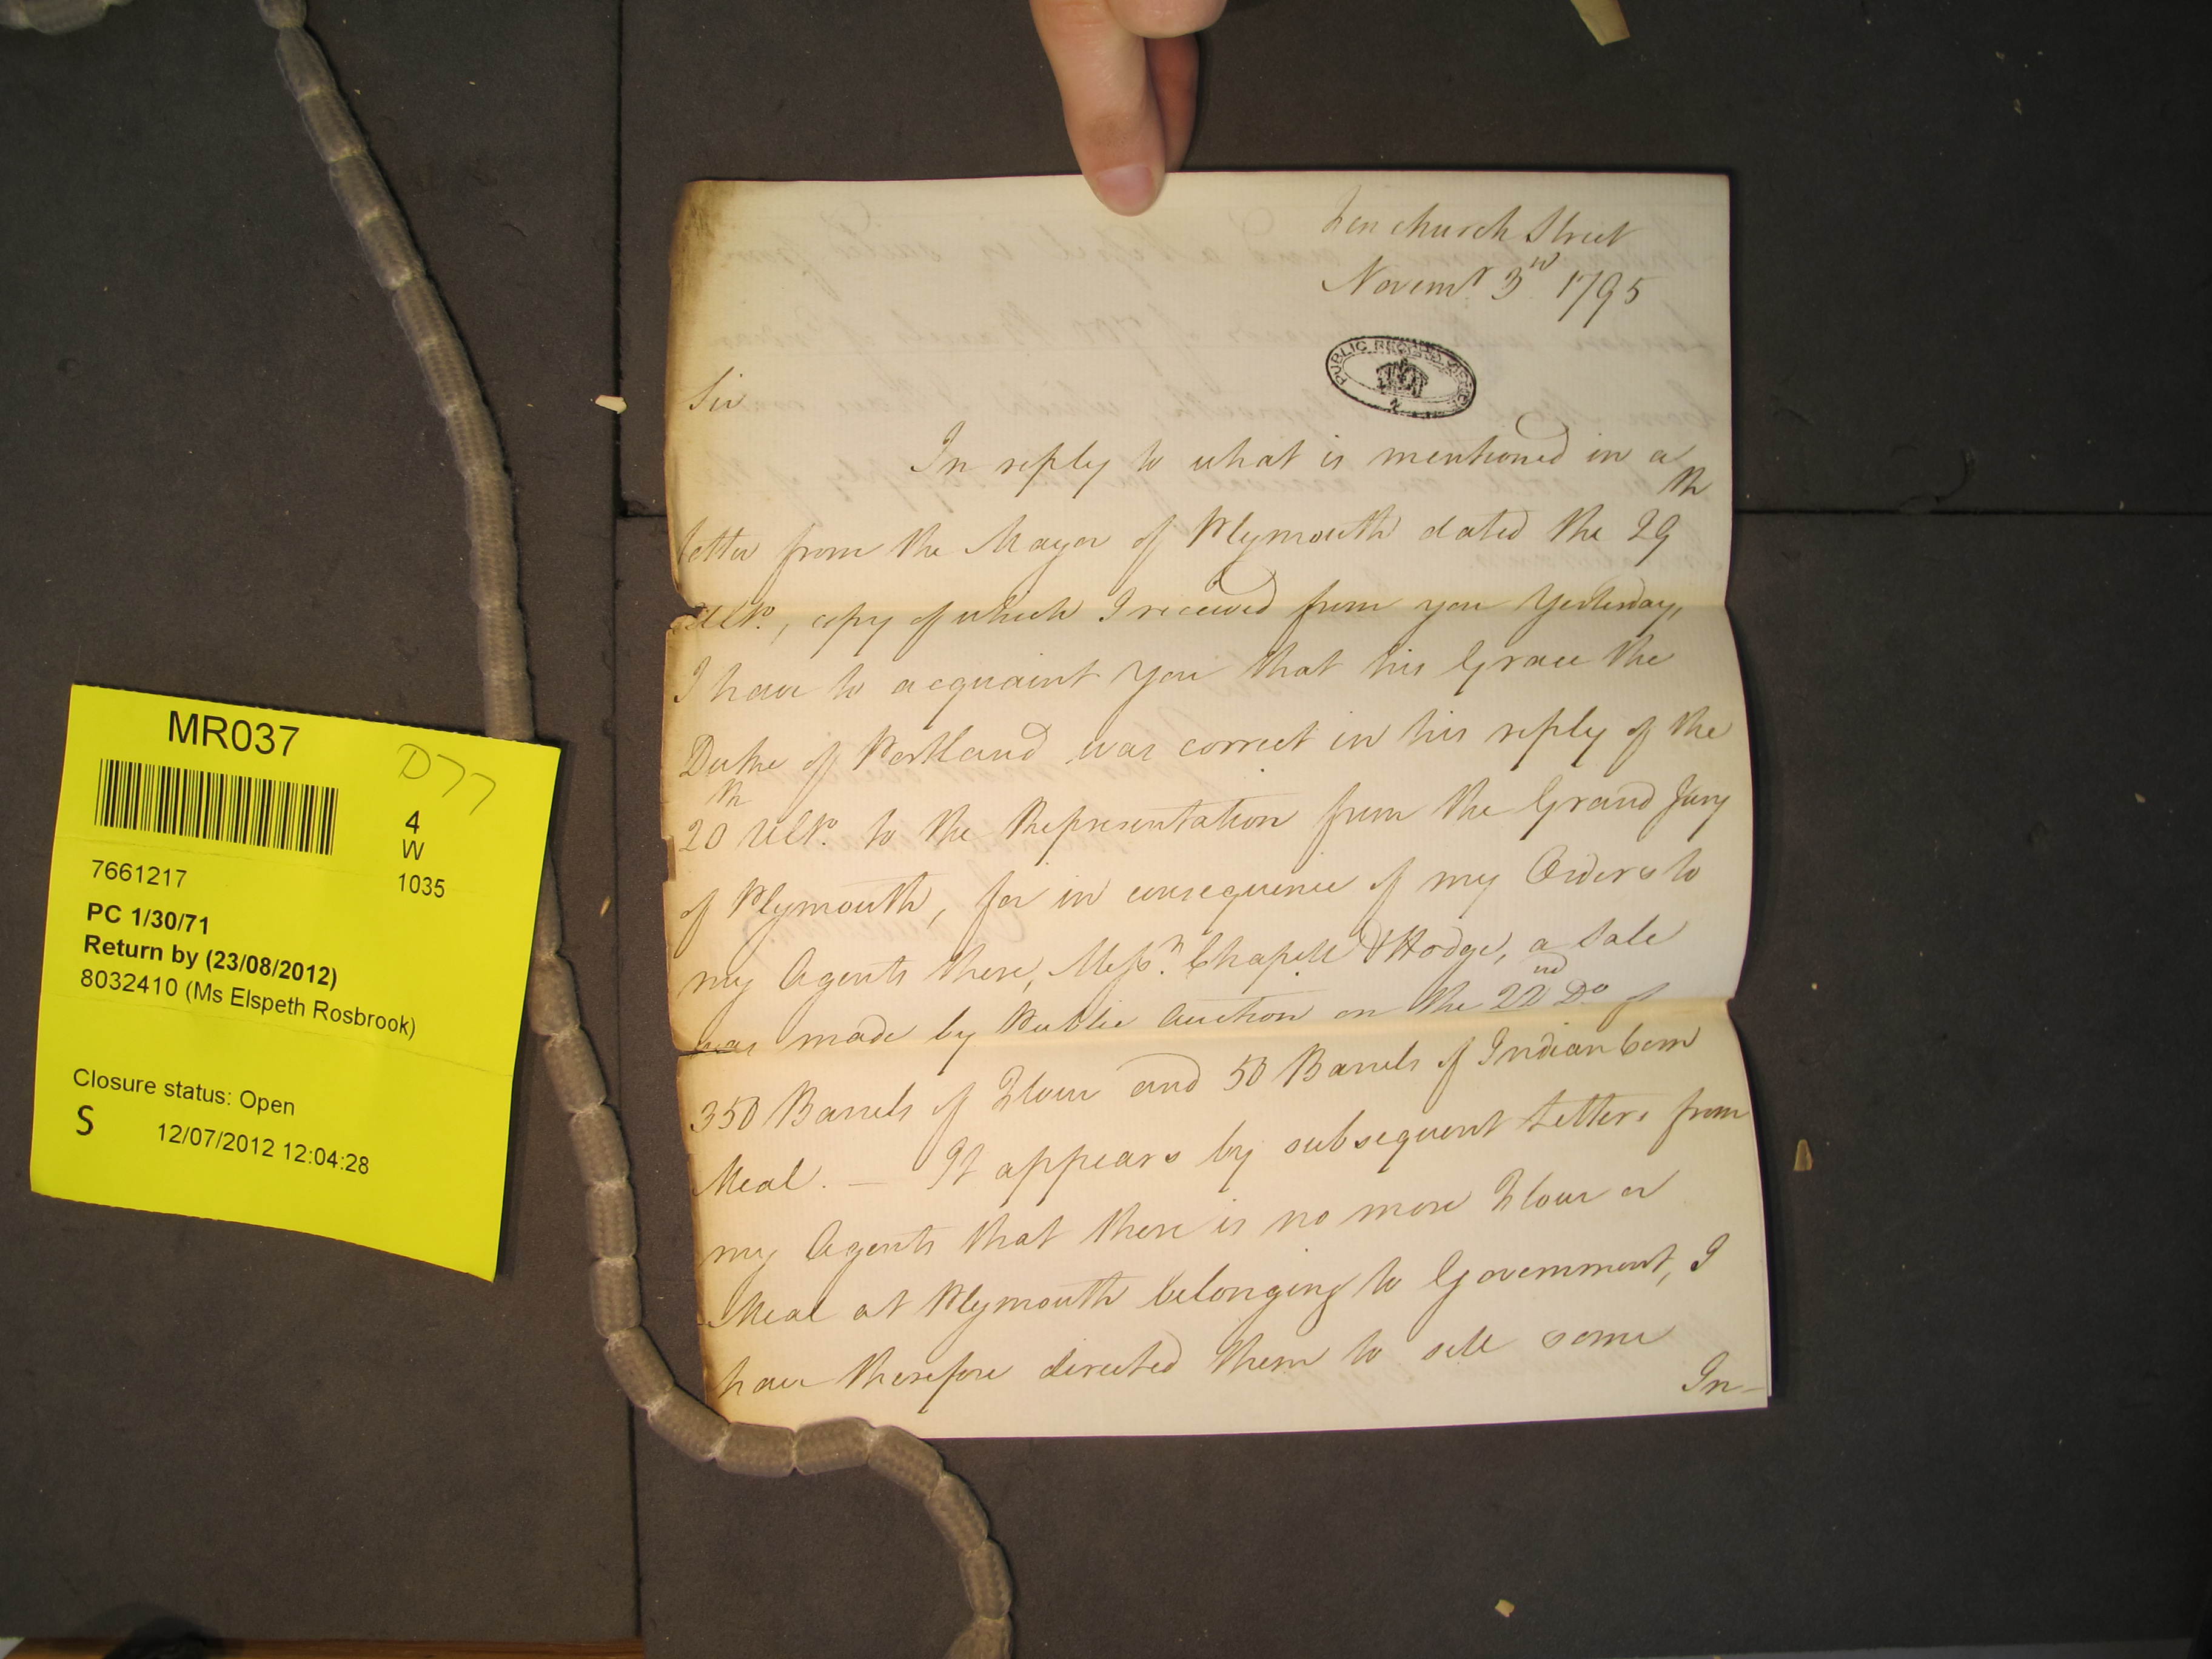 Fenchurch Street
Novemr. 3rd 1795
PUBLIC RECORD OFFICE
Sir
In reply to what is mentioned in a
letter from the Mayor of Plymouth dated the 29th
Ulto., copy of which I received from you Yesterday,
I have to acquaint You that his Grace the
Duke of Portland was correct in his reply of the
20th Ulto. to the Representation from the Grand Jury
of Plymouth, for in consequence of my Orders to
my Agents there, Messrs. Chapell & Hodge, a Sale
was made by Public Auction on the 22nd Do. of
350 Barrels of Flour and 50 Barrels of Indian Corn
Meal. — It appears by subsequent Letters from
my Agents that there is no more Flour or
Meal at Plymouth belonging to Government, I
have therefore directed them to sell some
In-
MR037
D77
4
W
1035
7661217
PC 1/30/71
Return by (23/08/2012)
8032410 (Ms Elspeth Rosbrook)
Closure status: Open
S
12/07/2012 12:04:28